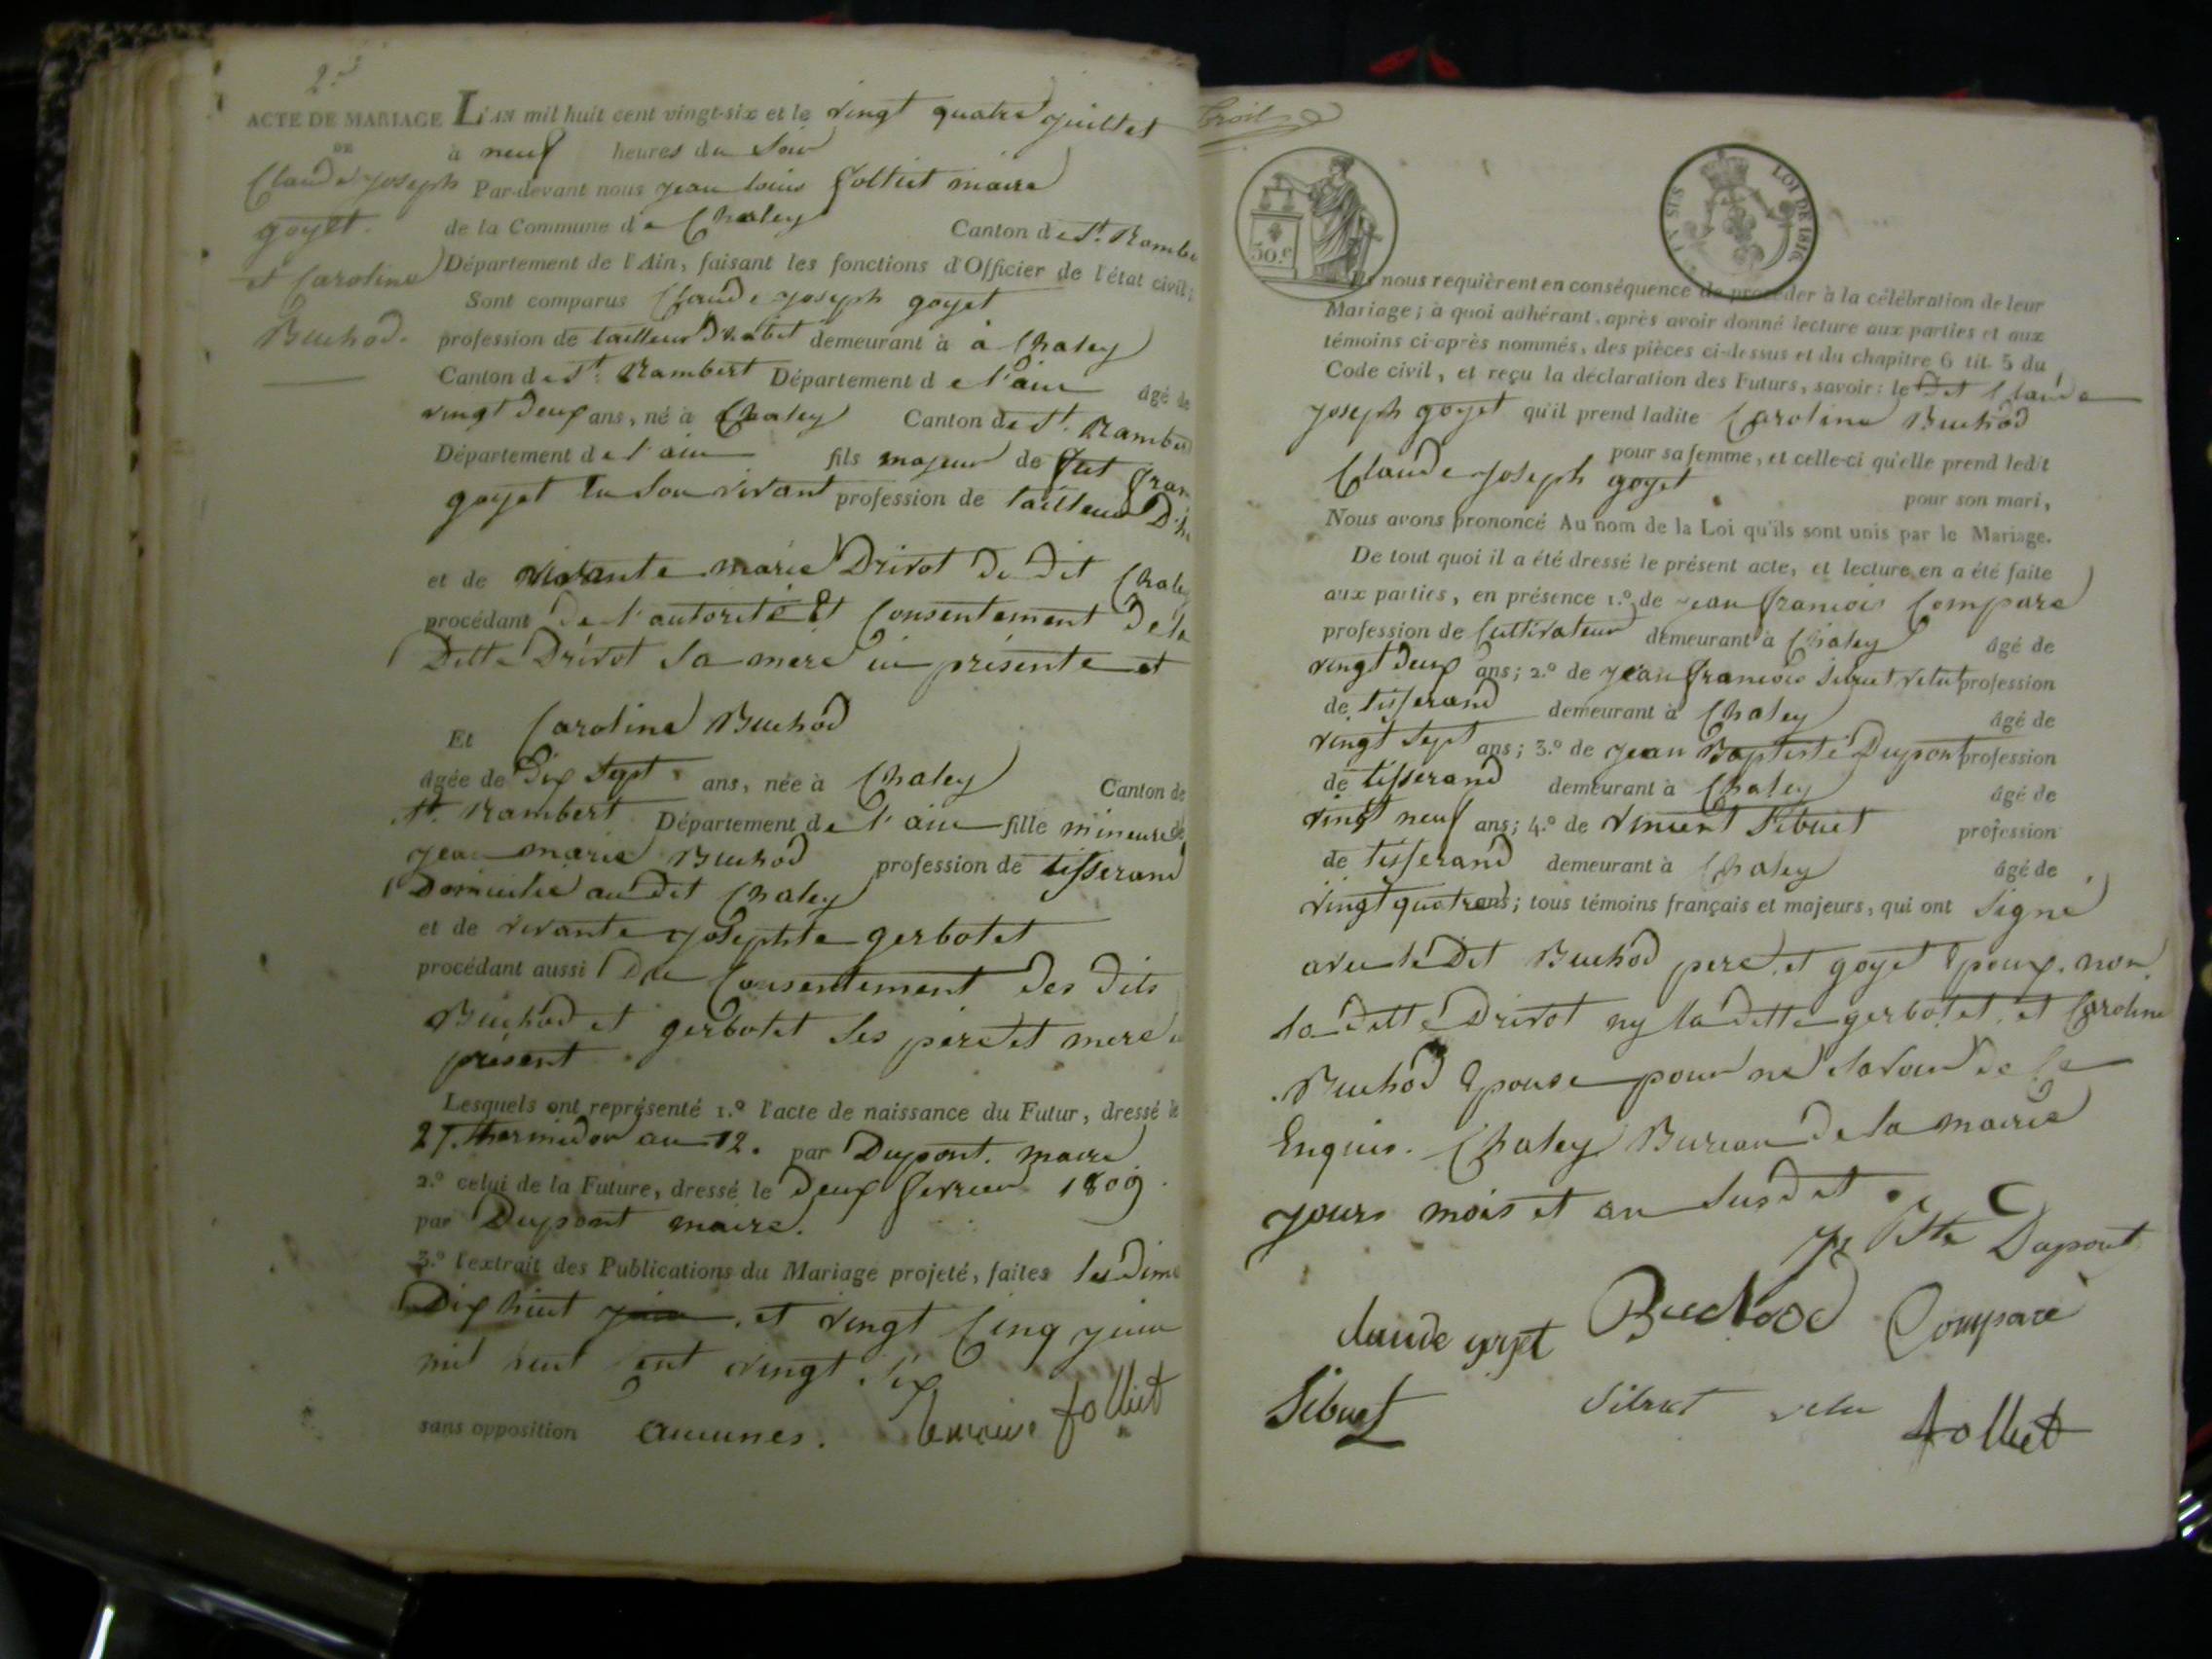 2.e
ACTE DE MARIAGE L'AN mil huit cent vingt-six et le vingt quatre juillet
DE
à neuf heures du Soir
Claude Joseph
Par-devant nous jean Louis folliet maire
goyet.
de la Commune de Chaley Canton de St. Rambe
et Caroline
Département de l'Ain, faisant les fonctions d'Officier de l'état civil;
Sont comparus Claude joseph goyet
Buchod.
profession de tailleur d'habit demeurant à à Chaley
Canton de St. Rambert Département de l'ain âgé de
vingt deux ans, né à Chaley Canton de St. Rambert
Département de l'ain fils majeur de fut fran
goyet En son vivant profession de tailleur D'h
et de vivante marie Drivot du dit Chaley
procédant De l'autorité Et Consentement De la
Ditte Drivot Sa mere ici présente et
Et Caroline Buchod
âgée de Dix Sept ans, née à Chaley Canton de
St. Rambert Département de l'ain fille mineure de
jean marie Buchod profession de tisserand
Domicilié au dit Chaley
et de vivante josephte gerbotet
procédant aussi Du Consentement des dits
Buchod et gerbotet Ses père et mere
présent
Lesquels ont représenté 1.º l'acte de naissance du Futur, dressé le
27 thermidor an 12. par Dupont. maire
2.º celui de la Future, dressé le Deux fevrier 1809.
par Dupont maire.
3.º l'extrait des Publications du Mariage projeté, faites les Dim
Dix huit juin, et vingt Cinq juin
mil huit cent vingt six
sans opposition aucunes. folliet
Trois
50.c
LOI DE 1816
Ils nous requièrent en conséquence de procéder à la célébration de leur
Mariage; à quoi adhérant, après avoir donné lecture aux parties et aux
témoins ci-après nommés, des pièces ci-dessus et du chapitre 6 tit. 5 du
Code civil, et reçu la déclaration des Futurs, savoir: le Dit Claude
joseph goyet qu'il prend ladite Caroline Buchod
pour sa femme, et celle-ci qu'elle prend ledit
Claude joseph goyet pour son mari,
Nous avons prononcé Au nom de la Loi qu'ils sont unis par le Mariage.
De tout quoi il a été dressé le présent acte, et lecture en a été faite
aux parties, en présence 1.º de jean francois Compare
profession de Cultivateur demeurant à Chaley âgé de
vingt deux ans; 2.º de jean francois Sibuet velut profession
de tisserand demeurant à Chaley âgé de
vingt Sept ans; 3.º de jean Baptiste Dupont profession
de tisserand demeurant à Chaley âgé de
vingt neuf ans; 4.º de vincent Sibuet profession
de tisserand demeurant à Chaley âgé de
vingt quatre ans; tous témoins français et majeurs, qui ont Signé
avec le Dit Buchod pere, et goyet Epoux. non
la ditte Drivot ny la ditte gerbotet et Caroline
Buchod Epouse pour ne Savoir de ce
Enquis. Chaley Bureau de la mairie
jours mois et an Susdit.
Bte Dupont
claude goyet Buchod Comparé
Sibuet Sibuet velu folliet